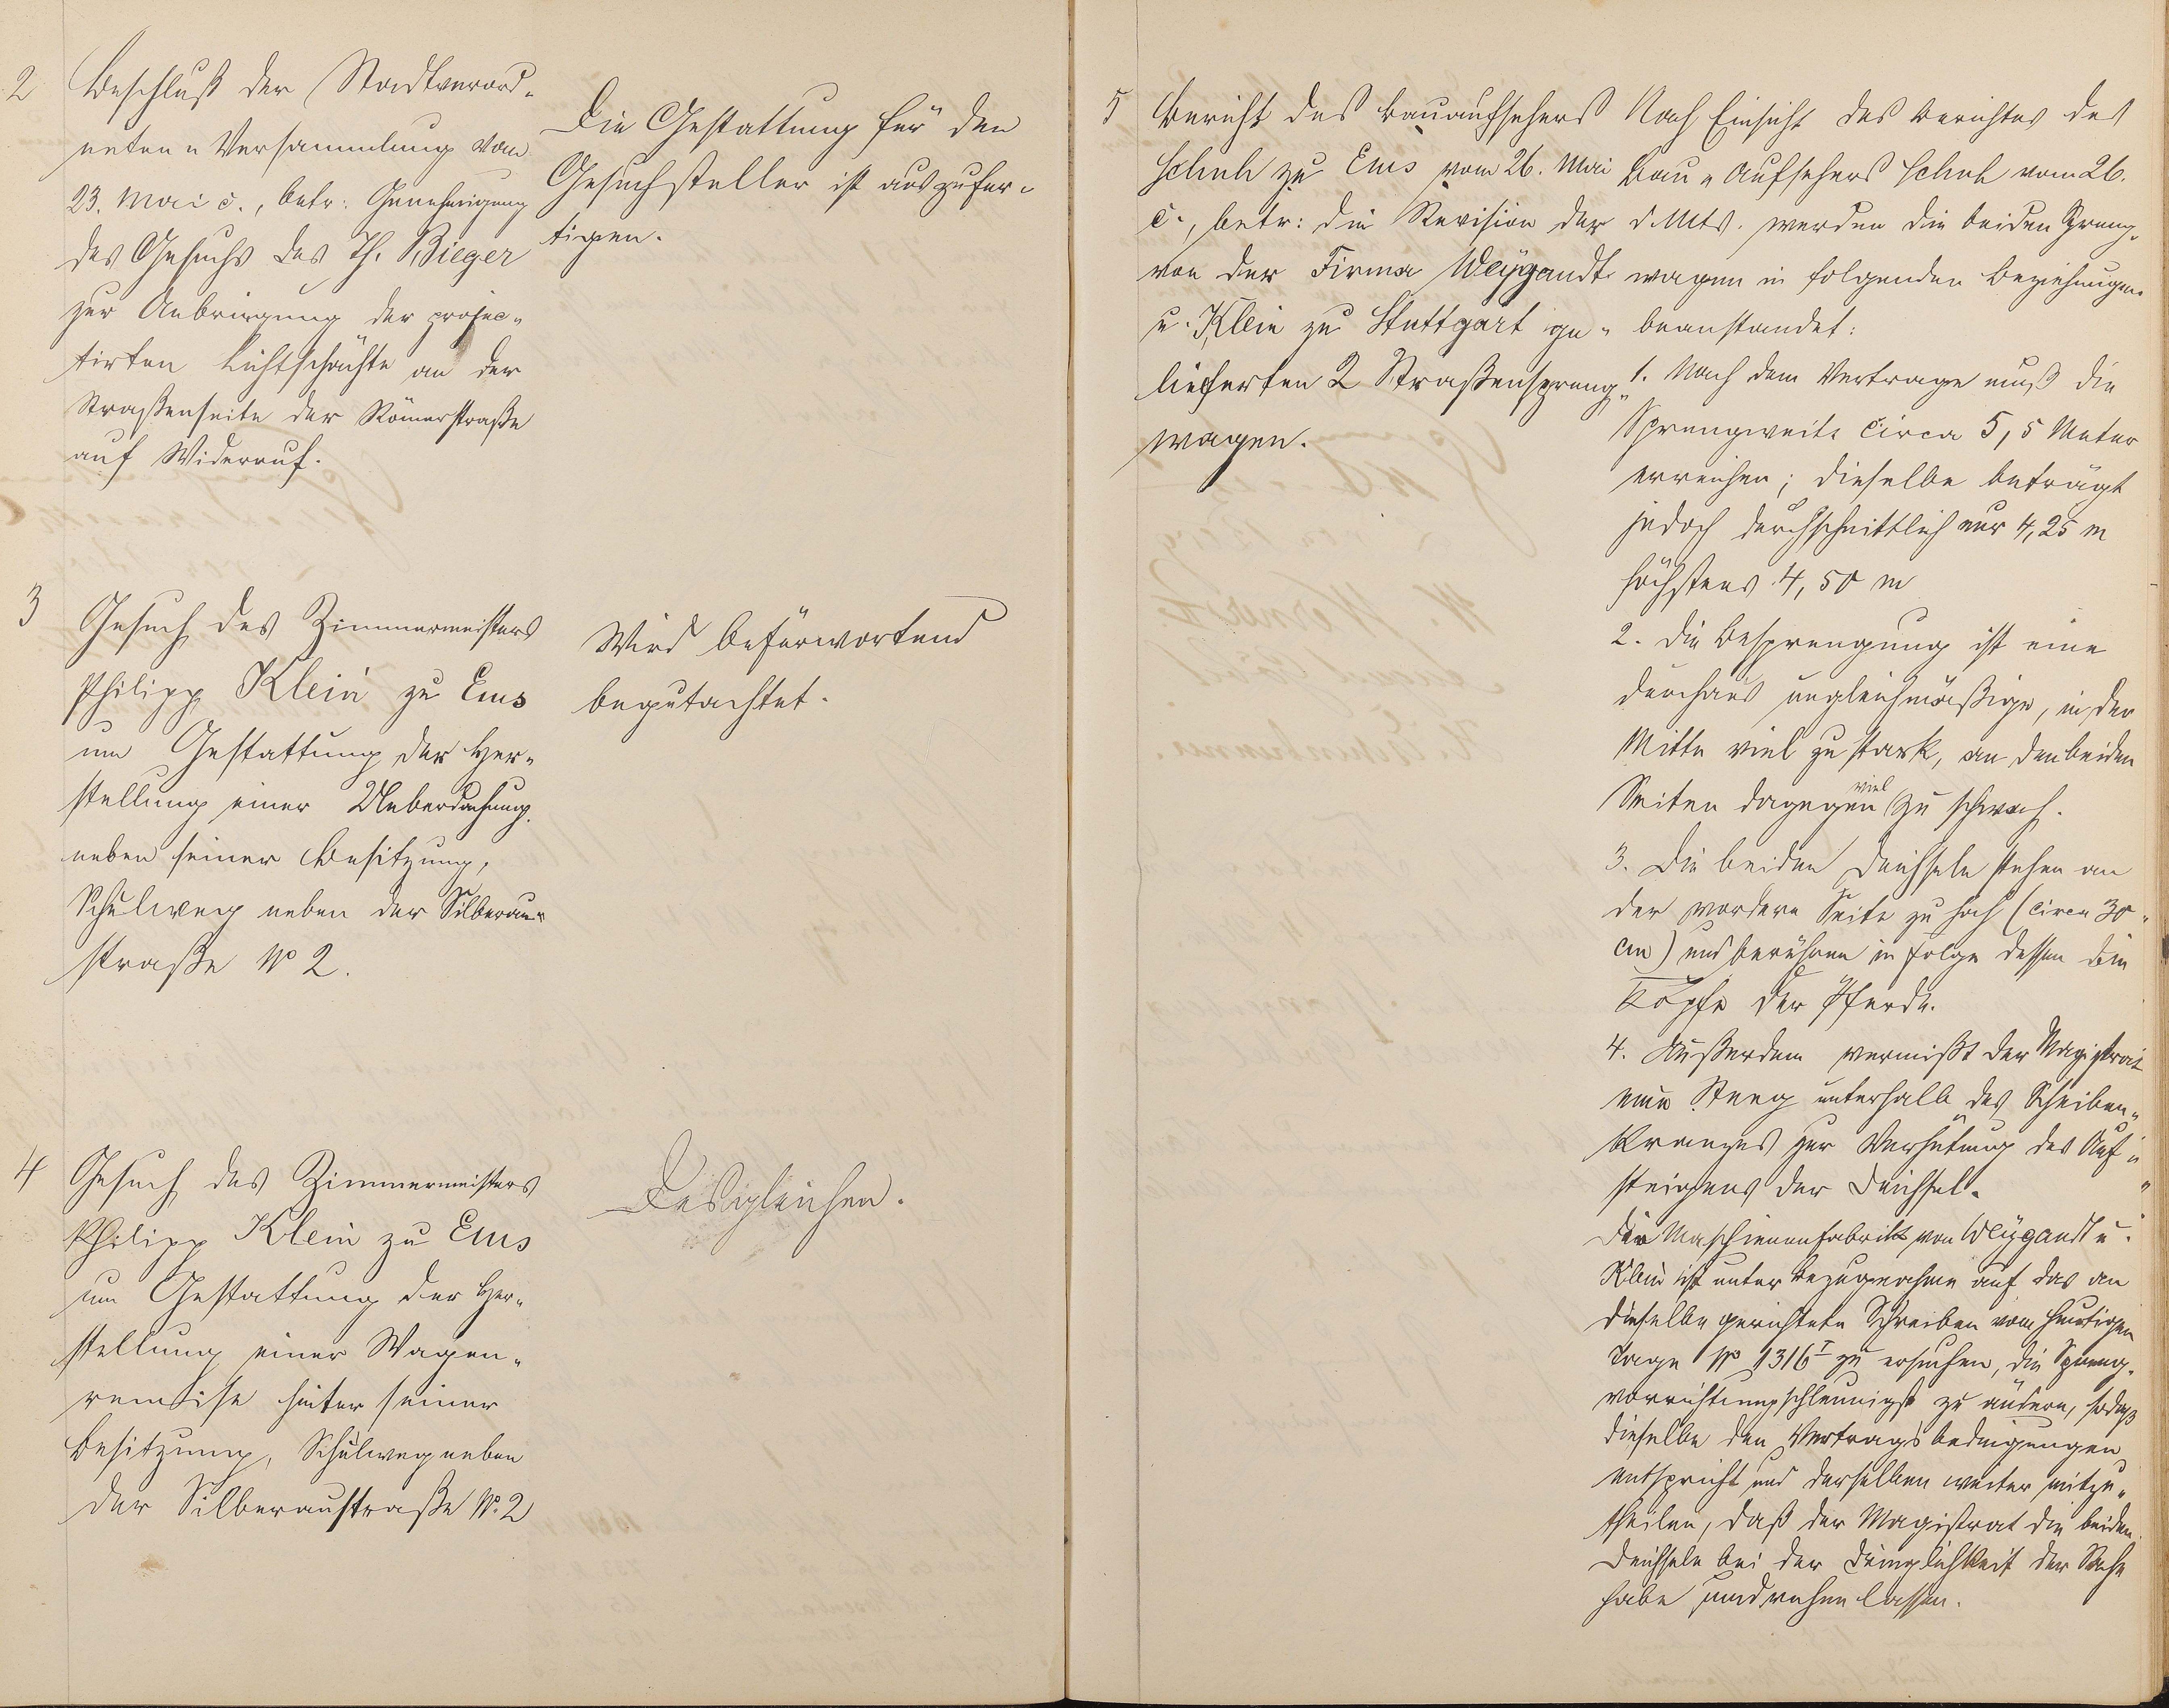 2
Beschluß der Stadtverord-
neten-Versammlung vom
23. Mai c., betr: Genehmigung
des Gesuchs des Th. Bieger
zur Anbringung der projec-
tirten Lichtschächte an der
Straßenseite der Römerstraße
auf Widerruf.
Die Gestattung für den
Gesuchsteller ist auszufer-
tigen.
3
Gesuch des Zimmermeisters
Philipp Klein zu Ems
um Gestattung der Her-
stellung einer Ueberdachung
neben seiner Besitzung,
Schulweg neben der Silberau-
straße No 2.
Wird befürwortend
begutachtet.
4
Gesuch des Zimmermeisters
Philipp Klein zu Ems
um Gestattung der Her-
stellung einer Wagen-
remise hinter seiner
Besitzung, Schulweg neben
der Silberaustraße No. 2
Desgleichen.
5
Bericht des Bauaufsehers
Schuh zu Ems vom 26. Mai
c., betr: die Revision der
von der Firma Weygandt
u. Klein zu Stuttgart ge-
lieferten 2 Straßenspreng-
wagen.
Nach Einsicht des Berichtes des
Bau-Aufsehers Schuh vom 26.
d. Mts. werden die beiden Spreng-
wagen in folgenden Beziehungen
beanstandet:
1. Nach dem Vertrage muß die
Sprengweite circa 5,5 Meter
erreichen; dieselbe beträgt
jedoch durchschnittlich nur 4,25 m
höchstens 4,50 m
2. Die Besprengung ist eine
durchaus ungleichmäßige, in der
Mitte viel zu stark, an den beiden
Seiten dagegen viel zu schwach.
3. Die beiden Deichseln stehen an
der vordern Seite zu hoch (circa 30
cm) und berühren in Folge dessen die
Köpfe der Pferde.
4. Außerdem vermißt der Magistrat
einen Steeg unterhalb des Scheiben-
kranzes zur Verhütung des Auf-
steigens der Deichsel.
Die Maschienenfabrik von Weygandt u.
Klein ist unter Bezugnahme auf das an
dieselbe gerichtete Schreiben vom heutigen
Tage No 1316 I zu ersuchen, die Spreng-
vorrichtung schleunigst zu ändern, sodaß
dieselbe den Vertragsbedingungen
entspricht und derselben weiter mitzu-
theilen, daß der Magistrat die beiden
Deichseln bei der Dringlichkeit der Sache
habe lassen.